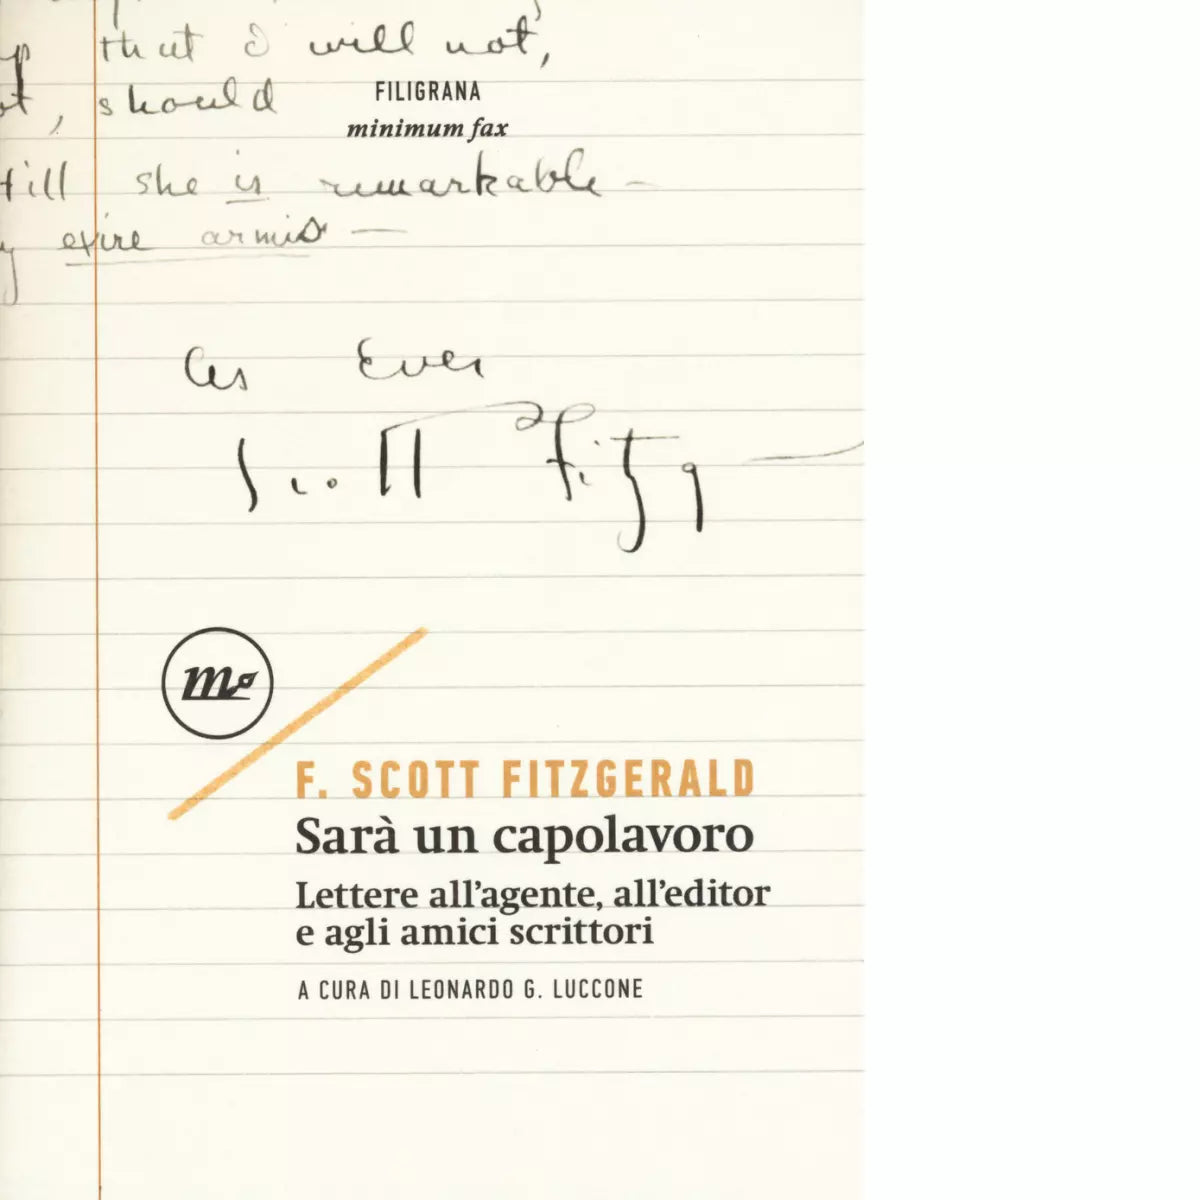 that I will not,
, should
FILIGRANA
minimum fax
still she is remarkable —
armis —
As Ever
Scott Fitzg
m
F. SCOTT FITZGERALD
Sarà un capolavoro
Lettere all'agente, all'editor
e agli amici scrittori
A CURA DI LEONARDO G. LUCCONE